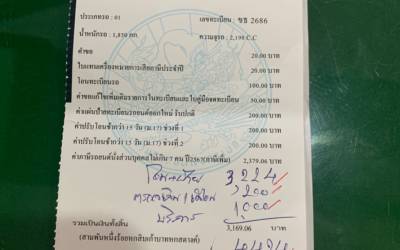 ประเภทรถ : 01 เลขทะเบียน : ขธ 2686
น้ำหนักรถ : 1,830 กก. ความจุรถ : 2,198 C.C
ค่าขอ 20.00 บาท
ใบแทนเครื่องหมายการเสียภาษีประจำปี 20.00 บาท
โอนทะเบียนรถ 100.00 บาท
ค่าขอแก้ไขเพิ่มเติมรายการในทะเบียนและใบคู่มือจดทะเบียน 50.00 บาท
ค่าแผ่นป้ายทะเบียนรถยนต์ออกใหม่ รับปกติ 200.00 บาท
ค่าปรับโอนช้ากว่า 15 วัน (ม.17) ช่วงที่ 1 200.00 บาท
ค่าปรับโอนช้ากว่า 15 วัน (ม.17) ช่วงที่ 2 200.00 บาท
ค่าภาษีรถยนต์นั่งส่วนบุคคลไม่เกิน 7 คน ปี2567(ภาษีเพิ่ม) 2,379.06 บาท
3224
200
1000
บริการ
รวมเป็นเงินทั้งสิ้น 3,169.06 บาท
(สามพันหนึ่งร้อยหกสิบเก้าบาทหกสตางค์)